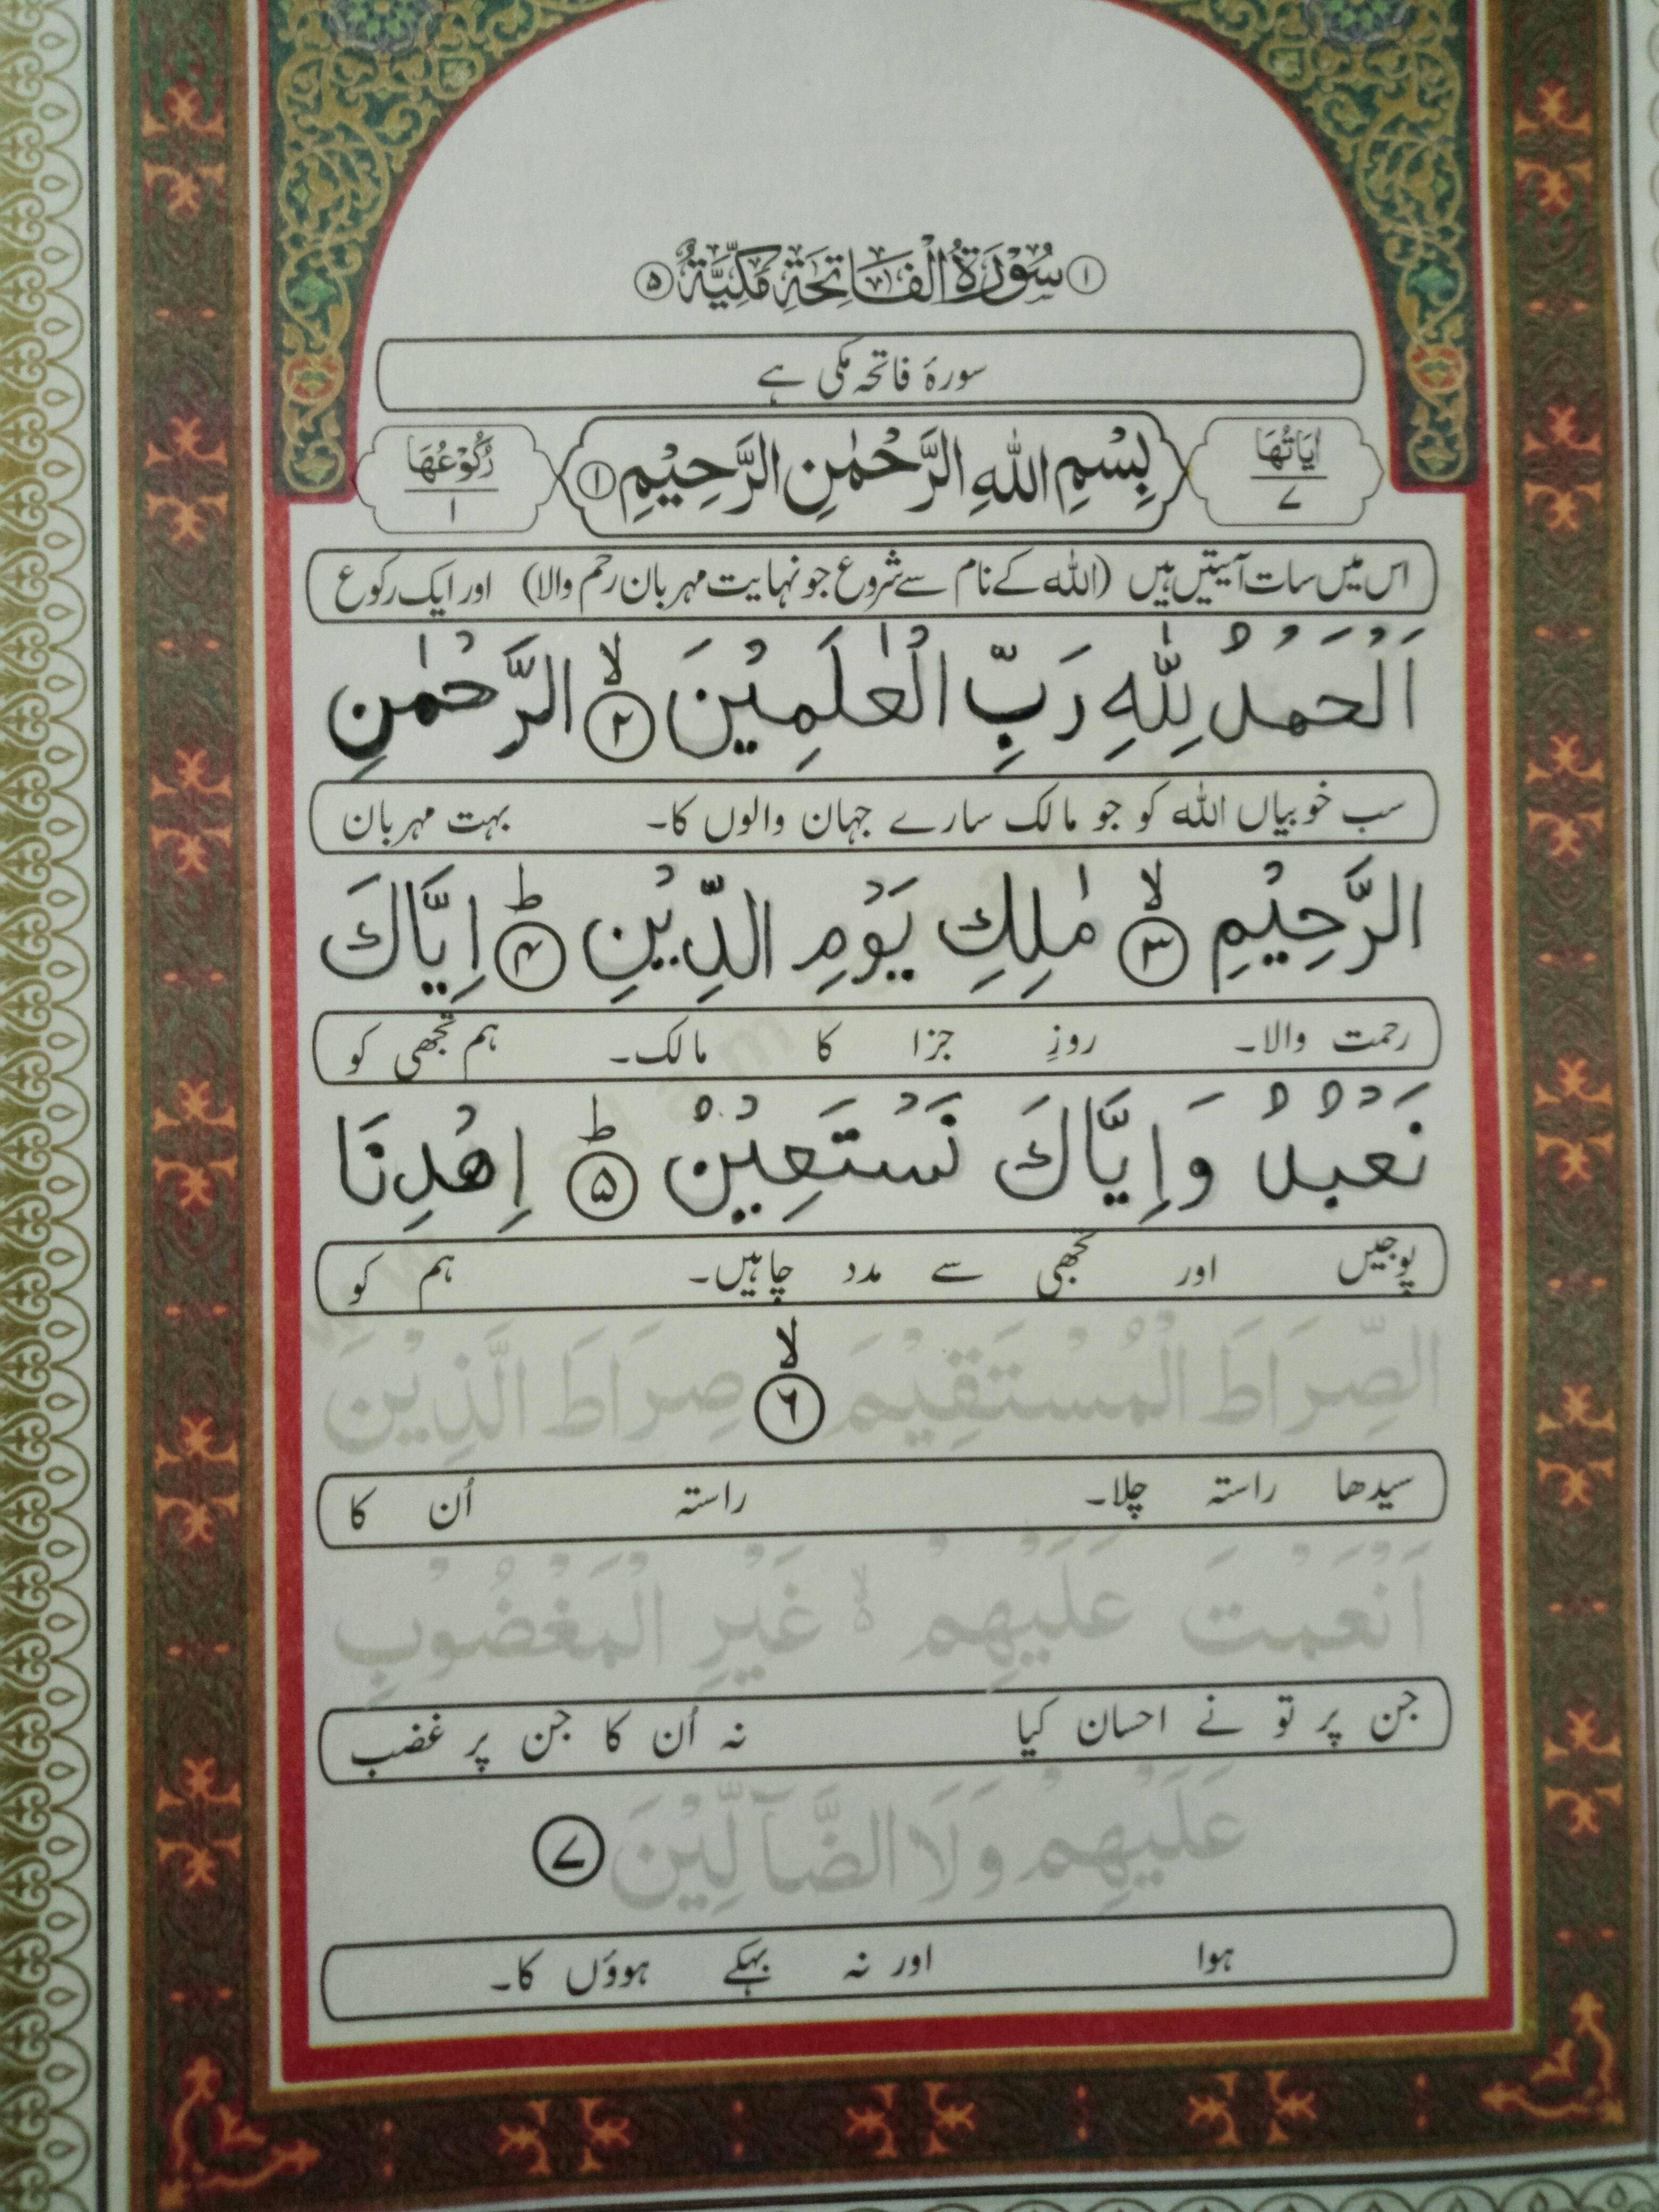 ۱ سُوْرَةُ الْفَاتِحَةِ مَكِّيَّةٌ ۵
سورۂ فاتحہ مکی ہے
اٰيَاتُهَا ۷ بِسْمِ اللهِ الرَّحْمٰنِ الرَّحِيْمِ ۱ رُكُوْعُهَا ۱
اس میں سات آیتیں ہیں (اللہ کے نام سے شروع جو نہایت مہربان رحم والا) اور ایک رکوع
اَلْحَمْدُ لِلّٰهِ رَبِّ الْعٰلَمِيْنَ ۙ۲ الرَّحْمٰنِ
سب خوبیاں اللہ کو جو مالک سارے جہان والوں کا۔ بہت مہربان
الرَّحِيْمِ ۙ۳ مٰلِكِ يَوْمِ الدِّيْنِ ؕ۴ اِيَّاكَ
رحمت والا۔ روزِ جزا کا مالک۔ ہم تجھی کو
نَعْبُدُ وَاِيَّاكَ نَسْتَعِيْنُ ؕ۵ اِهْدِنَا
پوجیں اور تجھی سے مدد چاہیں۔ ہم کو
الصِّرَاطَ الْمُسْتَقِيْمَ ۙ۶ صِرَاطَ الَّذِيْنَ
سیدھا راستہ چلا۔ راستہ اُن کا
اَنْعَمْتَ عَلَيْهِمْ ۙ۬ غَيْرِ الْمَغْضُوْبِ
جن پر تو نے احسان کیا نہ اُن کا جن پر غضب
عَلَيْهِمْ وَلَا الضَّآلِّيْنَ ۷
ہوا اور نہ بہکے ہوؤں کا۔